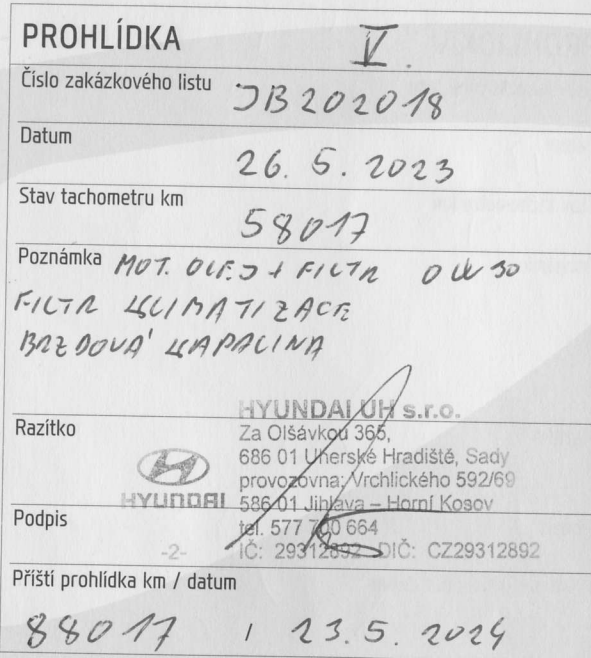 PROHLÍDKA V.
Číslo zakázkového listu JB202018
Datum 26. 5. 2023
Stav tachometru km 58017
Poznámka MOT. OLEJ + FILTR 0W30
FILTR KLIMATIZACE
BRZDOVÁ KAPALINA
Razítko
HYUNDAI UH s.r.o.
Za Olšávkou 365,
686 01 Uherské Hradiště, Sady
provozovna; Vrchlického 592/69
HYUNDAI 586 01 Jihlava – Horní Kosov
Podpis
tel. 577 700 664
-2- IČ: 29312892 DIČ: CZ29312892
Příští prohlídka km / datum
88017 / 23.5. 2024